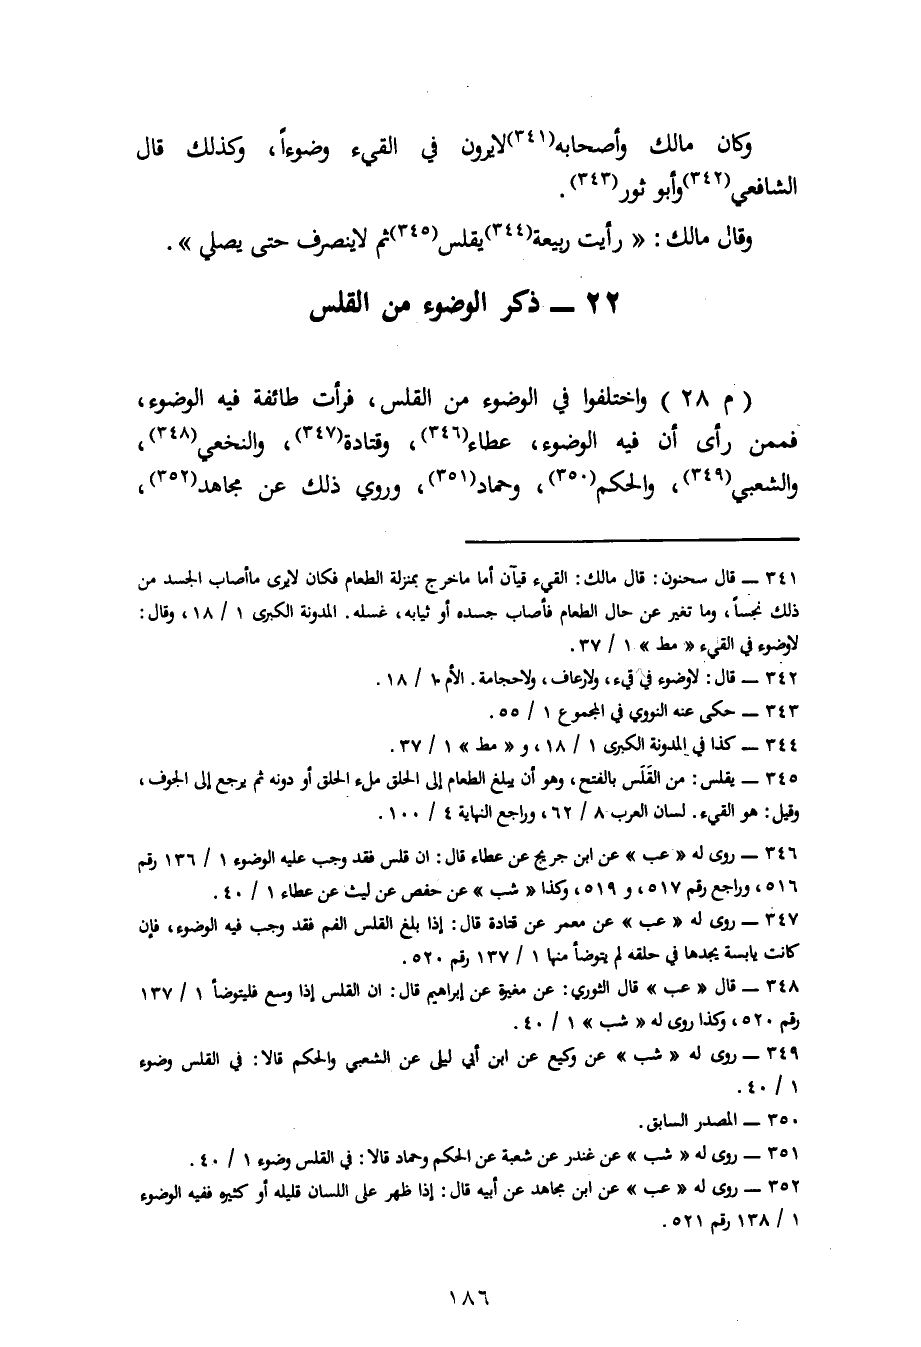 وكان مالك وأصحابه(٣٤١)لايرون في القيء وضوءاً، وكذلك قال
الشافعي(٣٤٢)وأبو ثور(٣٤٣).
وقال مالك: « رأيت ربيعة(٣٤٤)يقلس(٣٤٥)ثم لاينصرف حتى يصلي ».
٢٢ ــ ذكر الوضوء من القلس
( م ٢٨ ) واختلفوا في الوضوء من القلس، فرأت طائفة فيه الوضوء،
فممن رأى أن فيه الوضوء، عطاء(٣٤٦)، وقتادة(٣٤٧)، والنخعي(٣٤٨)،
والشعبي(٣٤٩)، والحكم(٣٥٠)، وحماد(٣٥١)، وروي ذلك عن مجاهد(٣٥٢)،
٣٤١ ــ قال سحنون: قال مالك: القيء قيآن أما ماخرج بمنزلة الطعام فكان لايرى ماأصاب الجسد من
ذلك نجساً، وما تغير عن حال الطعام فأصاب جسده أو ثيابه، غسله. المدونة الكبرى ١ / ١٨، وقال:
لاوضوء في القيء « مط » ١ / ٣٧.
٣٤٢ ــ قال: لاوضوء في قيء، ولارعاف، ولاحجامة. الأم ١ / ١٨.
٣٤٣ ــ حكى عنه النووي في المجموع ١ / ٥٥.
٣٤٤ ــ كذا في المدونة الكبرى ١ / ١٨، و « مط » ١ / ٣٧.
٣٤٥ ــ يقلس: من القَلَس بالفتح، وهو أن يبلغ الطعام إلى الحلق ملء الحلق أو دونه ثم يرجع إلى الجوف،
وقيل: هو القيء. لسان العرب ٨ / ٦٢، وراجع النهاية ٤ / ١٠٠.
٣٤٦ ــ روى له « عب » عن ابن جريج عن عطاء قال: ان قلس فقد وجب عليه الوضوء ١ / ١٣٦ رقم
٥١٦، وراجع رقم ٥١٧، و ٥١٩، وكذا « شب » عن حفص عن ليث عن عطاء ١ / ٤٠.
٣٤٧ ــ روى له « عب » عن معمر عن قتادة قال: إذا بلغ القلس الفم فقد وجب فيه الوضوء، فإن
كانت يابسة يجدها في حلقه لم يتوضأ منها ١ / ١٣٧ رقم ٥٢٠.
٣٤٨ ــ قال « عب » قال الثوري: عن مغيرة عن إبراهيم قال: ان القلس إذا وسع فليتوضأ ١ / ١٣٧
رقم ٥٢٠، وكذا روى له « شب » ١ / ٤٠.
٣٤٩ ــ روى له « شب » عن وكيع عن ابن أبي ليلى عن الشعبي والحكم قالا: في القلس وضوء
١ / ٤٠.
٣٥٠ ــ المصدر السابق.
٣٥١ ــ روى له « شب » عن غندر عن شعبة عن الحكم وحماد قالا: في القلس وضوء ١ / ٤٠.
٣٥٢ ــ روى له « عب » عن ابن مجاهد عن أبيه قال: إذا ظهر على اللسان قليله أو كثيره ففيه الوضوء
١ / ١٣٨ رقم ٥٢١.
١٨٦